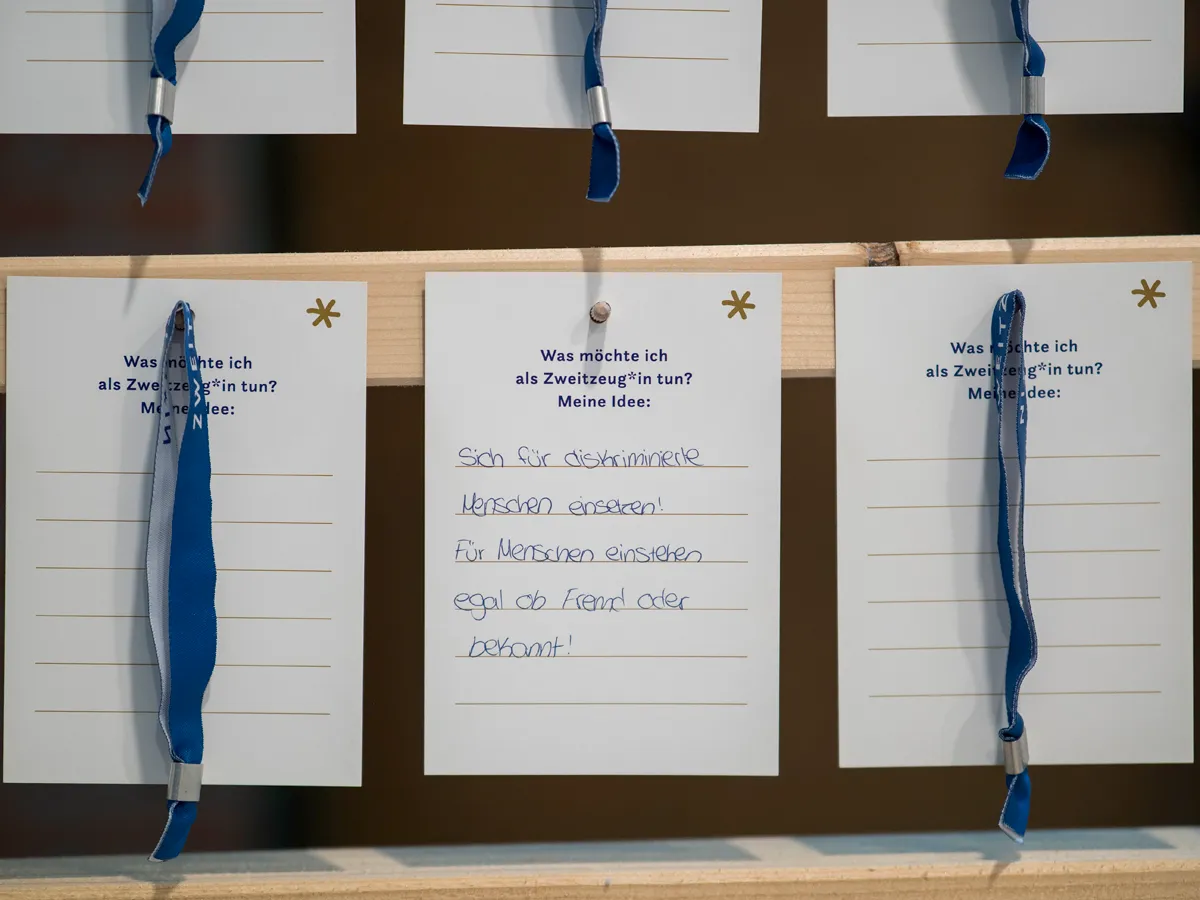 Was möchte ich
als Zweitzeug*in tun?
Meine Idee:
Was möchte ich
als Zweitzeug*in tun?
Meine Idee:
Sich für diskriminierte
Menschen einsetzen!
Für Menschen einstehen
egal ob Fremd oder
bekannt!
Was möchte ich
als Zweitzeug*in tun?
Meine Idee: